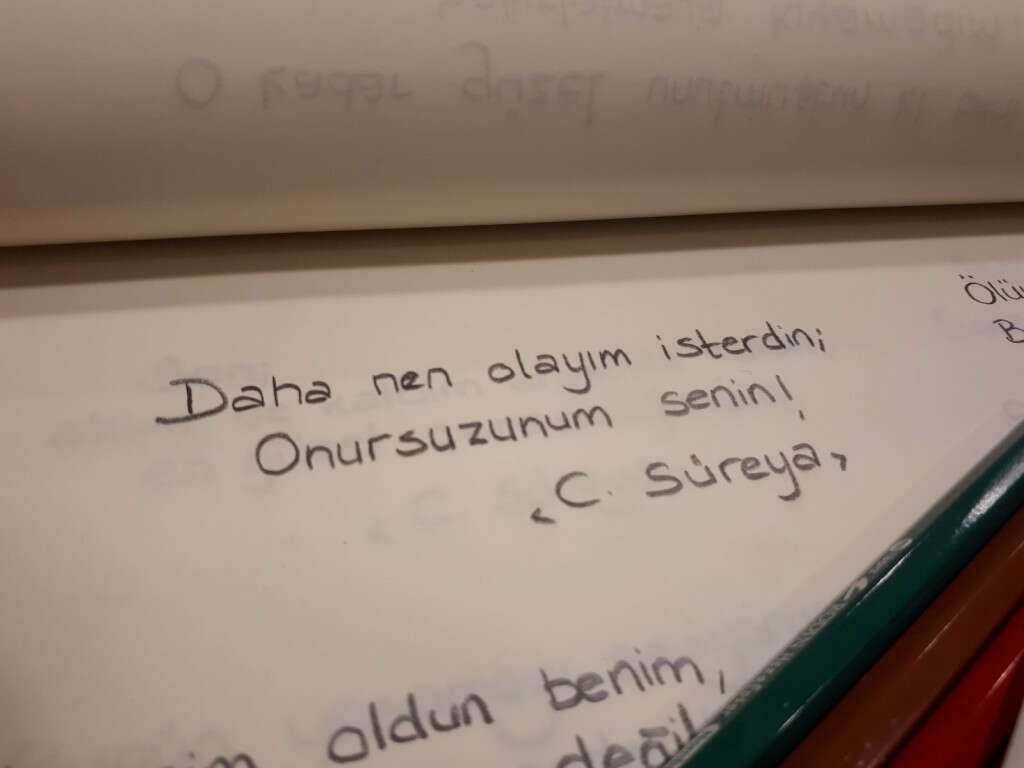 O kadar güzel
Daha nen olayım isterdin;
Onursuzunum senin!,
< C. Süreya >
oldun benim,
değil